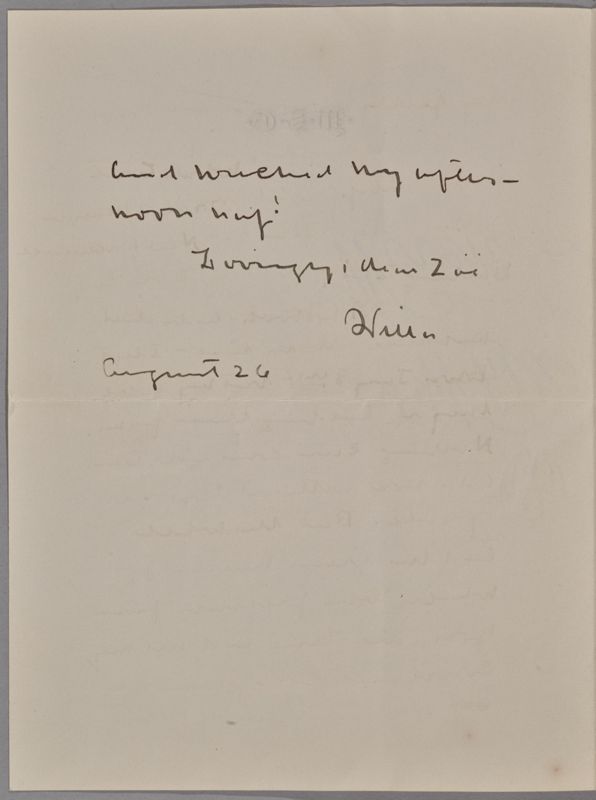 and wrecked my after-
noon nap!
Lovingly, dear Zoë
Willa
August 26